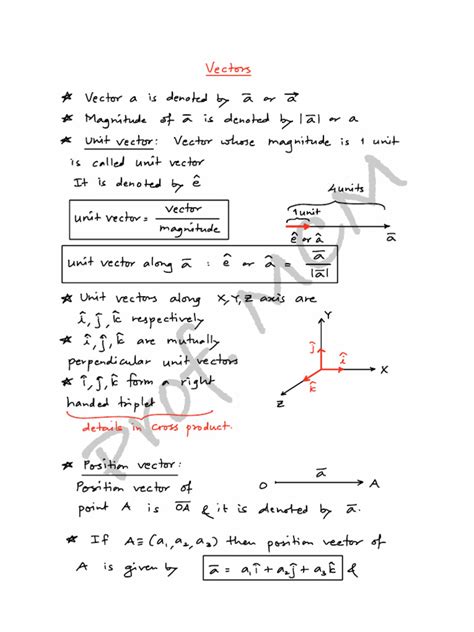 Vectors
★ Vector a is denoted by a̅ or a⃗
★ Magnitude of a̅ is denoted by |a̅| or a
★ Unit vector: Vector whose magnitude is 1 unit
is called unit vector
It is denoted by ê
4 units
1 unit
unit vector = vector / magnitude
ê or â
a̅
unit vector along a̅ : ê or â = a̅ / |a̅|
★ Unit vectors along X, Y, Z axis are
î, ĵ, k̂ respectively
★ î, ĵ, k̂ are mutually
perpendicular unit vectors
★ î, ĵ, k̂ form a right
handed triplet
details in cross product.
Y
ĵ
î
X
k̂
Z
★ Position vector:
Position vector of
point A is O̅A̅ & it is denoted by a̅.
a̅
O
A
★ If A ≡ (a₁, a₂, a₃) then position vector of
A is given by a̅ = a₁î + a₂ĵ + a₃k̂ &
Prof. MCM